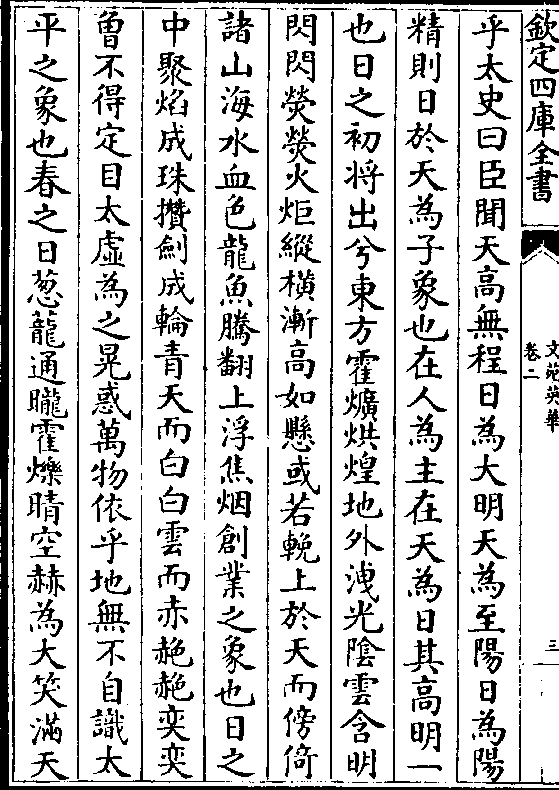 欽定四庫全書
文苑英華
卷二
三
乎太史曰臣聞天高無程日為大明天為至陽日為陽
精則日於天為子象也在人為主在天為日其高明一
也日之初將出兮東方霍爌烘煌地外洩光陰雲含明
閃閃熒熒火炬縱橫漸高如懸或若輓上於天而傍倚
諸山海水血色龍魚騰翻上浮焦烟創業之象也日之
中聚焰成珠攢劍成輪青天而白白雲而赤赩赩奕奕
曾不得定目太虛為之晃惑萬物依乎地無不自識太
平之象也春之日葱蘢通曨霍爍晴空赫為大笑滿天